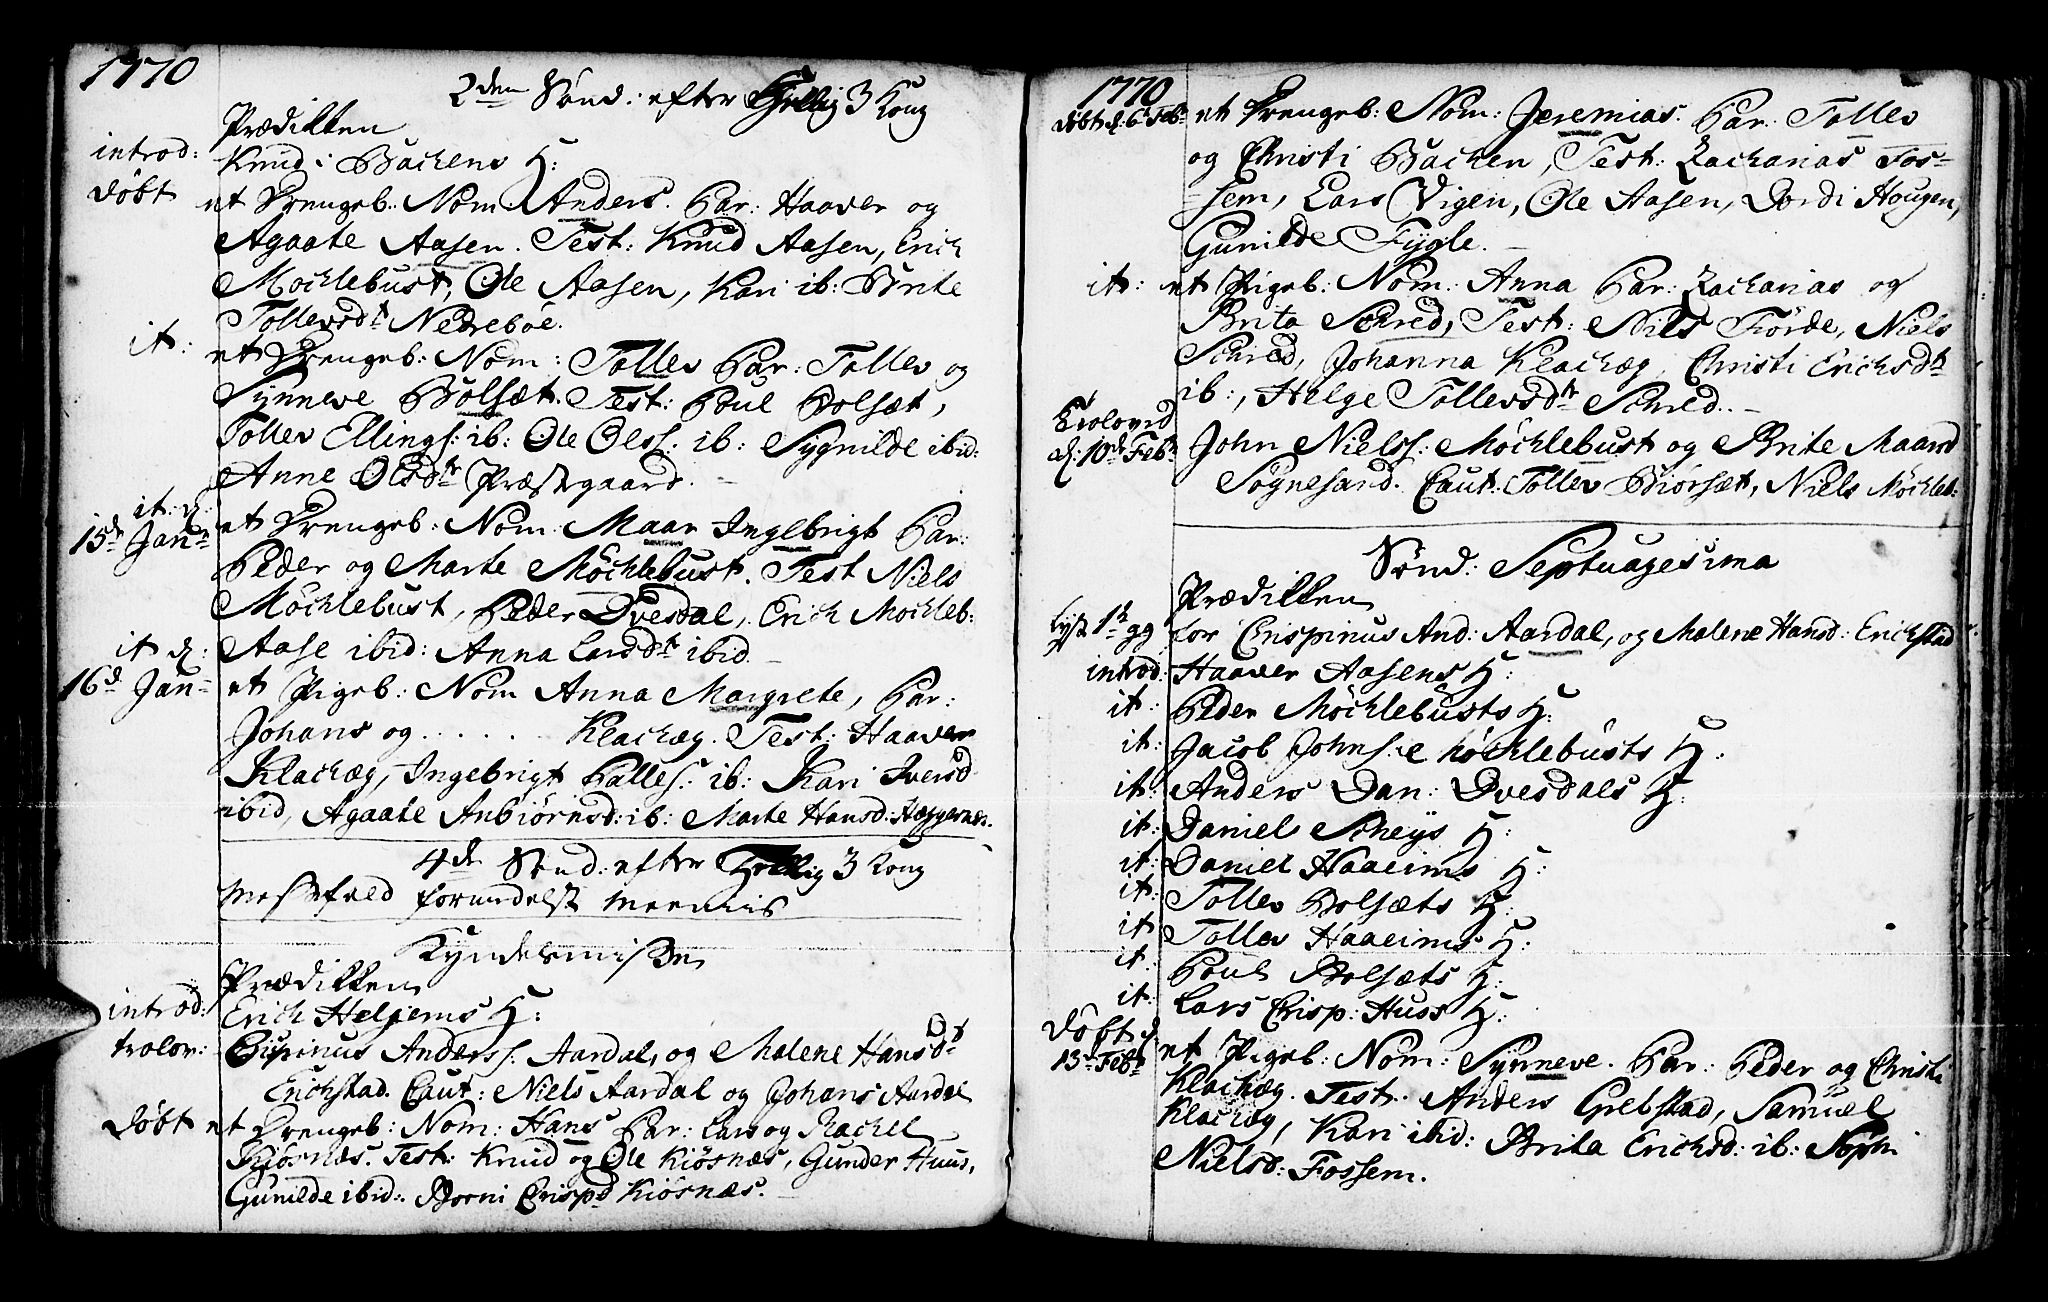 1770
2den Sønd: efter Hellig 3 Kong
Prædikken
introd: Knud Bachens H:
døbt et Drengeb: Nom: Anders. Par: Haaver og
Agaate Aasen. Test: Knud Aasen, Erich
Mochlebust, Ole Aasen, Kari ib: Brite
Tollevsdtr Nedrebøe.
it: et Drengeb: Nom: Tollev Par: Tollev og
Synneve Bolsæt. Test: Poul Bolsæt,
Tollev Ellings: ib: Ole Olss: ib: Sygnilde ibid:
Anne Olsdtr Præstegaard.
it d: 15de Janr et Drengeb: Nom: Maar Ingebrigt Par:
Peder og Marte Möchlebust. Test Niels
Möchlebust, Peder Dvesdal, Erich Mochleb:
Aase ibid: Anna Larsdtr ibid.
it d: 16d Jan et Pigeb: Nom Anna Margrete, Par:
Johans og . . . . . . Klachæg. Test: Haaver
Klachæg, Ingebrigt Palles: ib: Kari Iversd
ibid, Agaate Anbiörnsd: ib: Marte Hansd: Hæggernæs.
4de Sønd: efter Hellig 3 Kong
Messefald formedelst
Kyndelmissen
Prædikken
introd: Erich Helgems H:
trolov: Crispinus Anderss: Aardal, og Malene Hansdtr
Erichstad. Caut: Niels Aardal og Johans Aardal
Døbt et Drengeb: Nom: Hans Par: Lars og Rachel
Kiösnæs. Test: Knud og Ole Kiösnæs, Gunder Huus,
Gunilde ibid: Borni Crispd Kiösnæs.
1770
døbt d: 6te Feb: et Drengeb: Nom: Jeremias. Par: Tollev
og Christi Bachen, Test: Zacharias Fos-
sem, Lars Vigen, Ole Aasen, Dordi Hougen,
Gunilde Fygle.
it: et Pigeb: Nom: Anna Par: Zacharias og
Brita Schred, Test: Nils Förde, Niels
Schred, Johanna Klachæg, Christi Erichsdtr
ib:, Helge Tollevsdtr Schred.
Trolovet d: 10de Febr John Nielss: Möchlebust og Brite Maarsd
Sognesand. Caut: Tollev Biörsæt, Niels Möchleb:
Sønd: Septuagesima
Prædikken
lyst 1te gg for Crispinus And: Aardal, og Malene Hansd: Erichstad
introd: Haaver Aasens H:
it: Peder Möchlebusts H:
it: Jacob Johns: Möchlebusts H:
it: Anders Dan: Dvesdals H:
it: Daniels Scheys H:
it: Daniel Haaeims H:
it: Tollev Bolsæts H:
it: Tollev Haaeims H:
it: Poul Bolsæts H:
it: Lars Crisp: Huss H:
Døbt d 13de Febr et Pigeb: Nom: Synneve. Par: Peder og Christi
Klachæg. Test: Anders Grebstad, Samuel
Klachæg, Kari ibid: Brita Erichsd: ib: Sophi
Nielsd: Fossem.